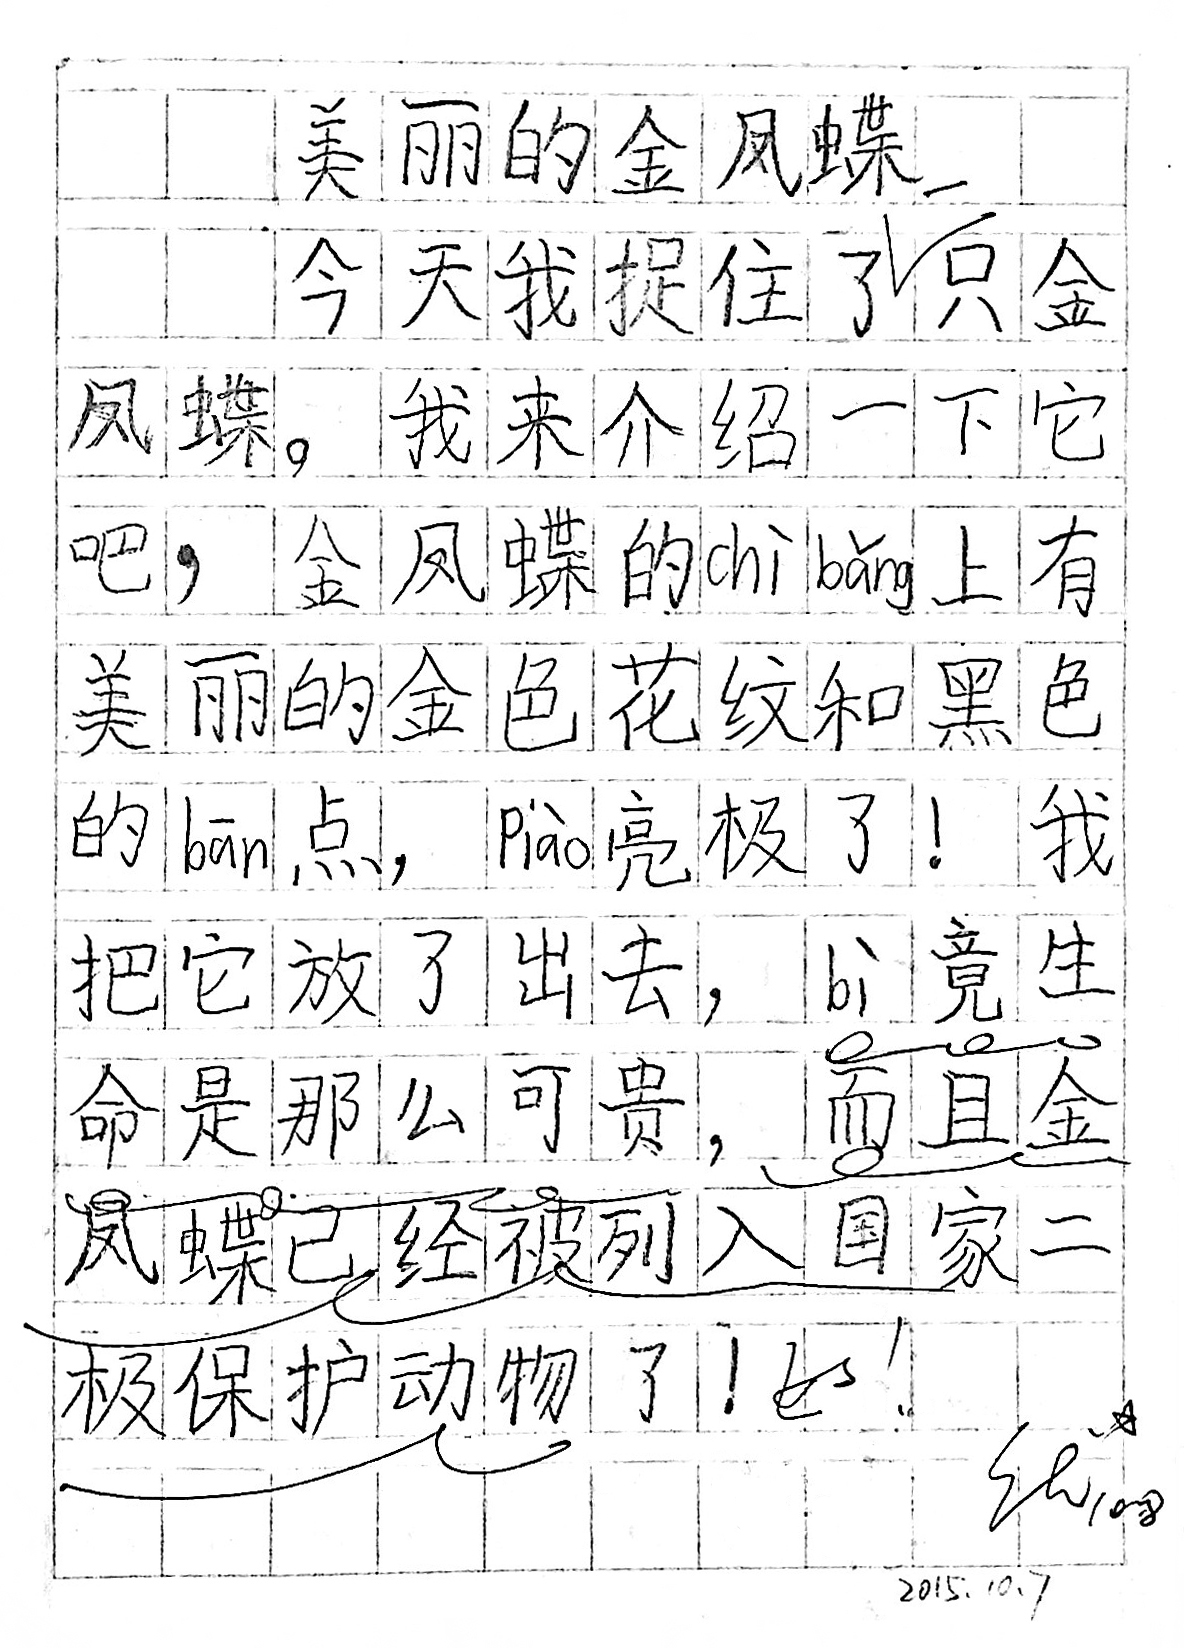 美丽的金凤蝶
一
今天我捉住了只金
凤蝶。我来介绍一下它
吧，金凤蝶的chì bǎng上有
美丽的金色花纹和黑色
的bān点，Piào亮极了！我
把它放了出去，bì竟生
命是那么可贵，而且金
凤蝶已经被列入国家二
极保护动物了！好！
优☆
2015.10.7